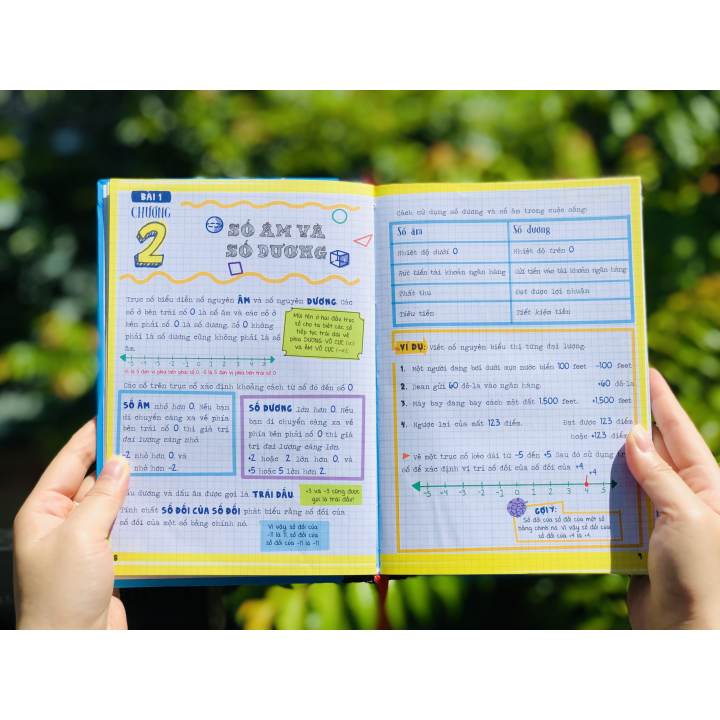 BÀI 1
CHƯƠNG
2
SỐ ÂM VÀ
SỐ DƯƠNG
Trục số biểu diễn số nguyên ÂM và số nguyên DƯƠNG. Các
số ở bên trái số 0 là số âm và các số ở
bên phải số 0 là số dương. Số 0 không
phải là số dương cũng không phải là số
âm.
Mũi tên ở hai đầu trục
số cho ta biết các số
tiếp tục trải dài về
phía DƯƠNG VÔ CỰC (+∞)
và ÂM VÔ CỰC (-∞).
-5 -4 -3 -2 -1 0 1 2 3 4 5
Các số trên trục số xác định khoảng cách từ số đó đến số 0.
SỐ ÂM nhỏ hơn 0. Nếu bạn
di chuyển càng xa về phía
bên trái số 0 thì giá trị
đại lượng càng nhỏ.
-2 nhỏ hơn 0, và
nhỏ hơn -2.
SỐ DƯƠNG lớn hơn 0. Nếu
bạn di chuyển càng xa về
phía bên phải số 0 thì giá
trị đại lượng càng lớn.
+2 hoặc 2 lớn hơn 0, và
+5 hoặc 5 lớn hơn 2.
dấu dương và dấu âm được gọi là TRÁI DẤU.
+3 và -3 cũng được
gọi là trái dấu!
Tính chất SỐ ĐỐI CỦA SỐ ĐỐI phát biểu rằng số đối của
số đối của một số bằng chính nó.
Vì vậy, số đối của
-11 là 11, số đối
số đối của -11 là -11.
8
Cách sử dụng số dương và số âm trong cuộc sống:
Số âm
Số dương
Nhiệt độ dưới 0
Nhiệt độ trên 0
Rút tiền tài khoản ngân hàng
Gửi tiền vào tài khoản ngân hàng
Thất thu
Đạt được lợi nhuận
Tiêu tiền
Tiết kiệm tiền
VÍ DỤ: Viết số nguyên biểu thị từng đại lượng.
1. Một người đang bơi dưới mực nước biển 100 feet. -100 feet
2. Dean gửi 60 đô-la vào ngân hàng. +60 đô-la
3. Máy bay đang bay cách mặt đất 1.500 feet. +1.500 feet
4. Ngược lại của mất 123 điểm. Đạt được 123 điểm
hoặc +123 điểm
Vẽ một trục số kéo dài từ -5 đến +5. Sau đó sử dụng trục
số để xác định vị trí số đối của số đối của +4.
+4
-5 -4 -3 -2 -1 0 1 2 3 4 5
GỢI Ý:
Số đối của số đối của một số
bằng chính nó. Vì vậy số đối của
số đối của +4 là +4.
9